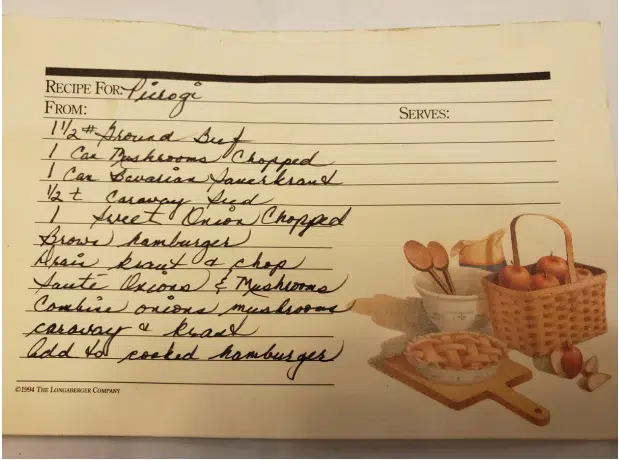 RECIPE FOR: Pierogi
FROM: SERVES:
1 1/2 # Ground Beef
1 Can Mushrooms Chopped
1 Can Bavarian Sauerkraut
1/2 t Caraway Seed
1 Sweet Onion Chopped
Brown hamburger
Drain kraut & chop
Sauté Onions & Mushrooms
Combine onions mushrooms
caraway & kraut
Add to cooked hamburger
©1994 THE LONGABERGER COMPANY